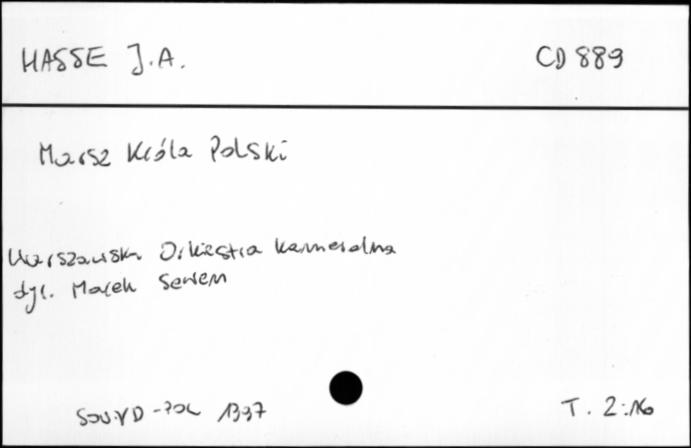 HASSE J.A. CD 889
Marsz Króla Polski
Warszawska Orkiestra Kameralna
dyr. Marek Sewen
SOUND-POL 1997
T. 2:16